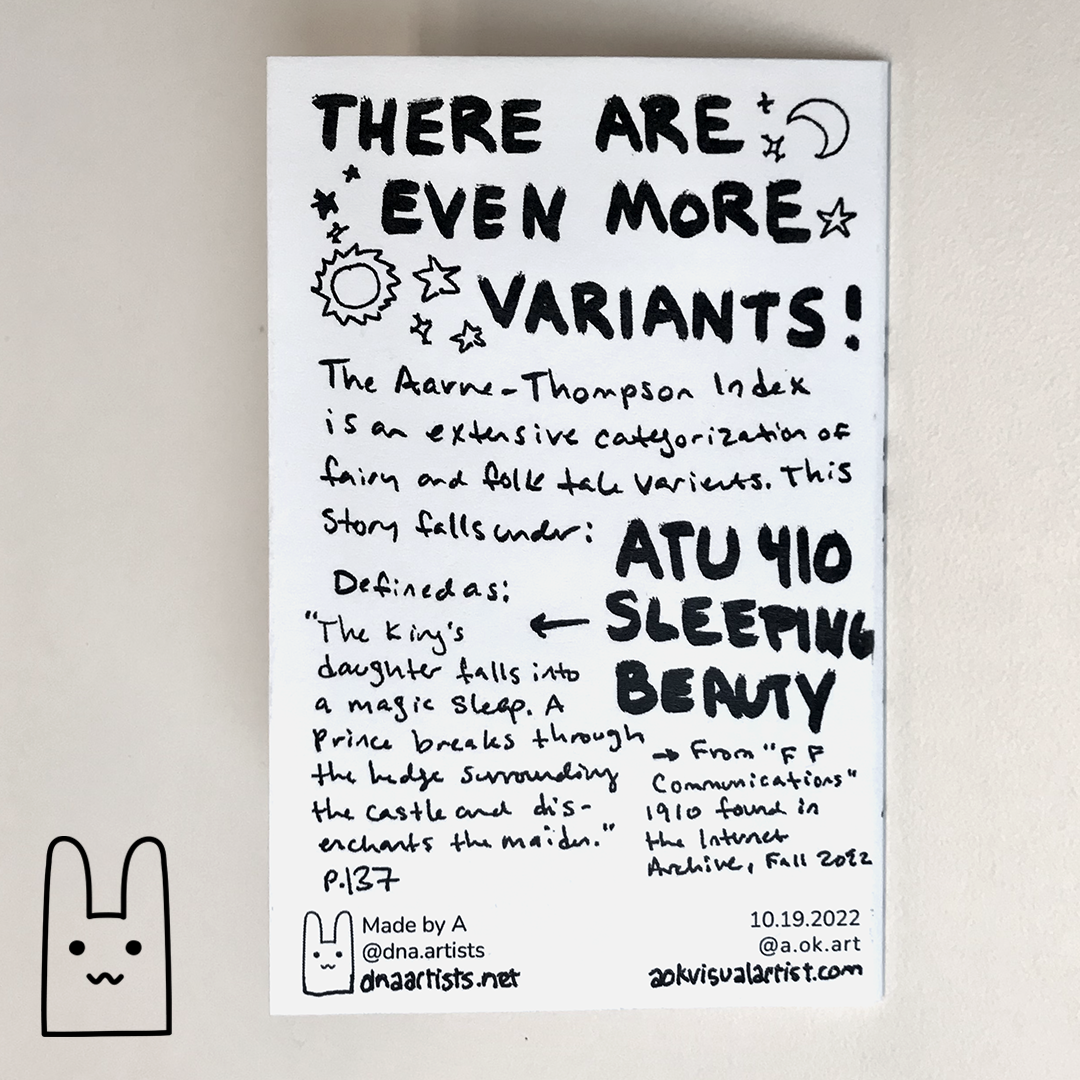 THERE ARE
EVEN MORE
VARIANTS!
The Aarne-Thompson Index
is an extensive categorization of
fairy and folk tale varients. This
Story falls under:
ATU 410
SLEEPING
BEAUTY
Defined as:
"The King's
daughter falls into
a magic sleep. A
Prince breaks through
the hedge surrounding
the castle and dis-
enchants the maiden."
P.137
→ From "F F
Communications"
1910 found in
the Internet
Archive, Fall 2022
Made by A
@dna.artists
dnaartists.net
10.19.2022
@a.ok.art
aokvisualartist.com